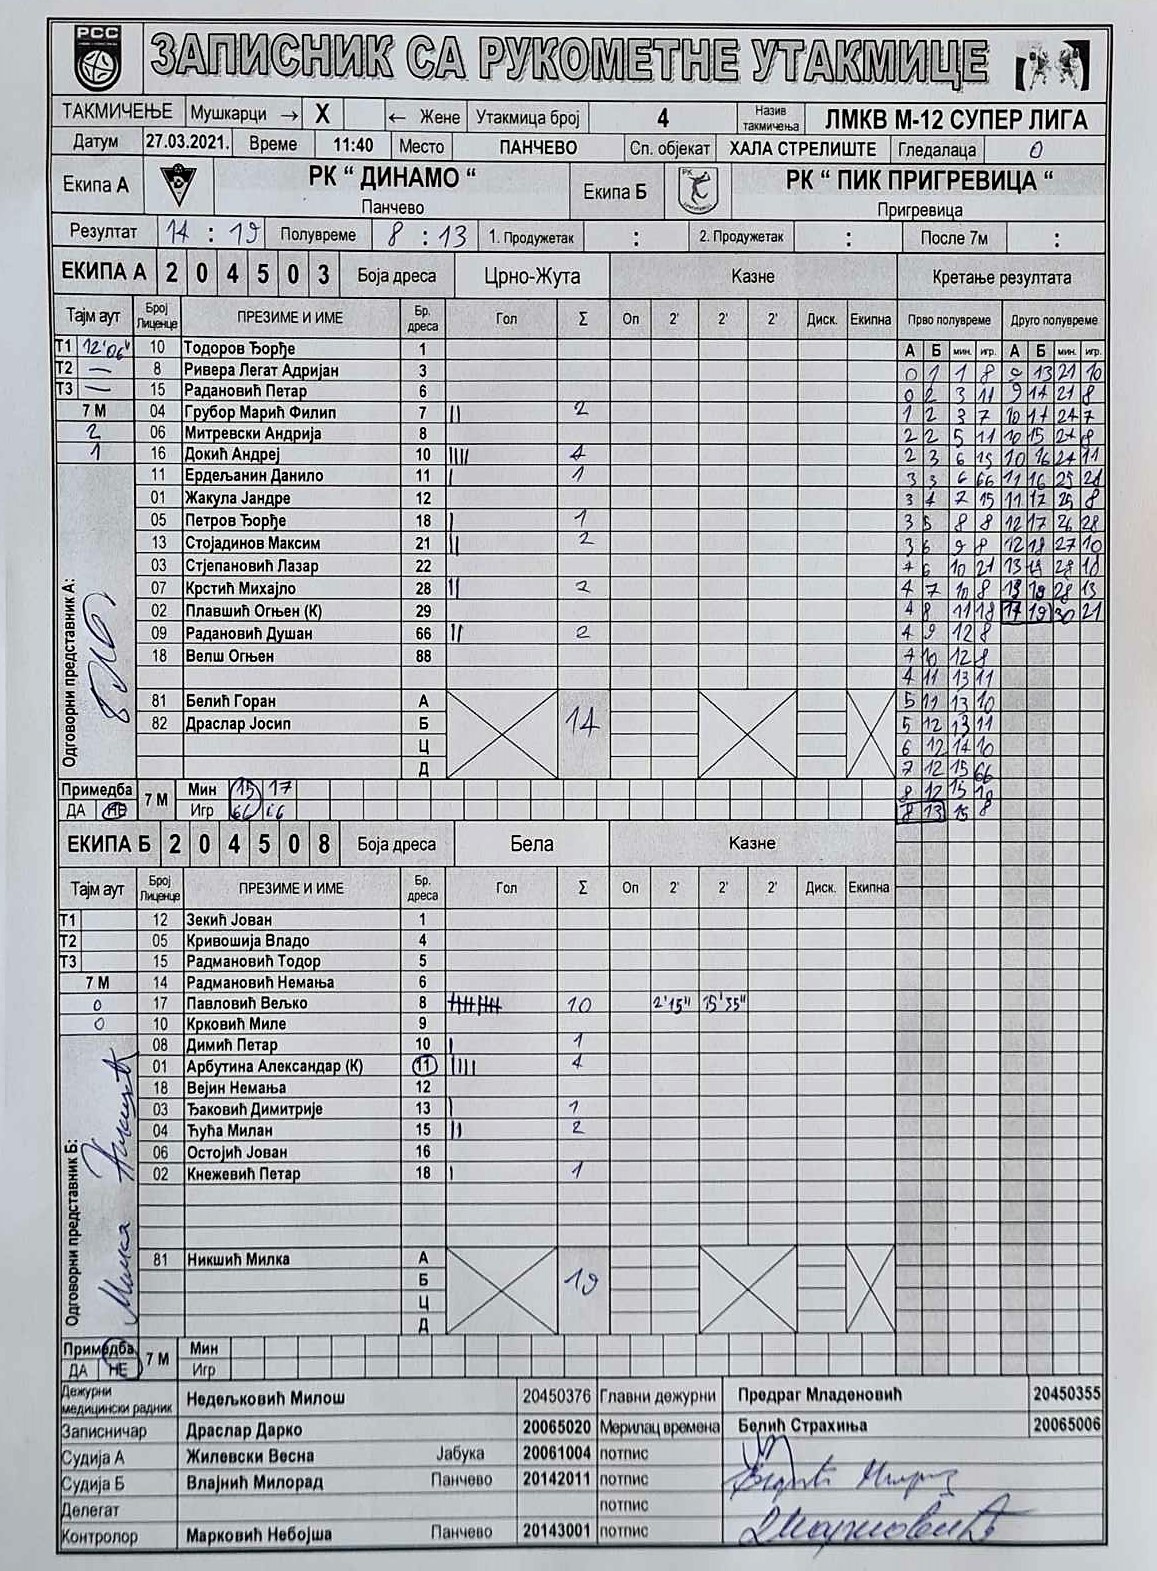 РСС
ЗАПИСНИК СА РУКОМЕТНЕ УТАКМИЦЕ
ТАКМИЧЕЊЕ Мушкарци → X ← Жене Утакмица број 4 Назив такмичења ЛМКВ М-12 СУПЕР ЛИГА
Датум 27.03.2021. Време 11:40 Место ПАНЧЕВО Сп. објекат ХАЛА СТРЕЛИШТЕ Гледалаца 0
Екипа А РК “ ДИНАМО “ Екипа Б РК “ ПИК ПРИГРЕВИЦА “
Панчево Пригревица
Резултат 14 : 19 Полувреме 8 : 13 1. Продужетак : 2. Продужетак : После 7м :
ЕКИПА А 2 0 4 5 0 3 Боја дреса Црно-Жута Казне Кретање резултата
Тајм аут Број Лиценце ПРЕЗИМЕ И ИМЕ Бр. дреса Гол Σ Оп 2' 2' 2' Диск. Екипна Прво полувреме Друго полувреме
А Б мин. игр. А Б мин. игр.
Т1 12'06" 10 Тодоров Ђорђе 1
Т2 — 8 Ривера Легат Адријан 3
Т3 — 15 Радановић Петар 6
7 М 04 Грубор Марић Филип 7 || 2
2 06 Митревски Андрија 8
1 16 Докић Андреј 10 |||| 4
11 Ердељанин Данило 11 | 1
01 Жакула Јандре 12
05 Петров Ђорђе 18 | 1
13 Стојадинов Максим 21 || 2
03 Стјепановић Лазар 22
07 Крстић Михајло 28 || 2
02 Плавшић Огњен (К) 29
09 Радановић Душан 66 || 2
18 Велш Огњен 88
81 Белић Горан А
82 Драслар Јосип Б 14
Ц
Д
Одговорни представник А:
0 1 1 8
0 2 3 11
1 2 3 7
2 2 5 11
2 3 6 15
3 3 6 66
3 4 7 15
3 5 8 8
3 6 9 8
4 6 10 21
4 7 10 8
4 8 11 18
4 9 12 8
4 10 12 8
4 11 13 11
5 11 13 10
5 12 13 11
6 12 14 10
7 12 15 66
8 12 15 10
8 13 15 8
9 13 21 10
9 14 21 8
10 14 24 7
10 15 24 8
10 16 24 11
11 16 25 21
11 17 25 8
12 17 26 28
12 18 27 10
Примедба 7 М Мин 15 17
ДА НЕ Игр 66
ЕКИПА Б 2 0 4 5 0 8 Боја дреса Бела Казне
Тајм аут Број Лиценце ПРЕЗИМЕ И ИМЕ Бр. дреса Гол Σ Оп 2' 2' 2' Диск. Екипна
Т1 12 Зекић Јован 1
Т2 05 Кривошија Владо 4
Т3 15 Радмановић Тодор 5
7 М 14 Радмановић Немања 6
0 17 Павловић Вељко 8 10 2'15" 15'35"
0 10 Крковић Миле 9
08 Димић Петар 10 | 1
01 Арбутина Александар (К) 11 |||| 4
18 Вејин Немања 12
03 Ђаковић Димитрије 13 | 1
04 Ћућа Милан 15 || 2
06 Остојић Јован 16
02 Кнежевић Петар 18 | 1
81 Никшић Милка А
Б 19
Ц
Д
Одговорни представник Б: Милка Никшић
Примедба 7 М Мин
ДА НЕ Игр
Дежурни медицински радник Недељковић Милош 20450376 Главни дежурни Предраг Младеновић 20450355
Записничар Драслар Дарко 20065020 Мерилац времена Белић Страхиња 20065006
Судија А Жилевски Весна Јабука 20061004 потпис
Судија Б Влајнић Милорад Панчево 20142011 потпис
Делегат потпис
Контролор Марковић Небојша Панчево 20143001 потпис